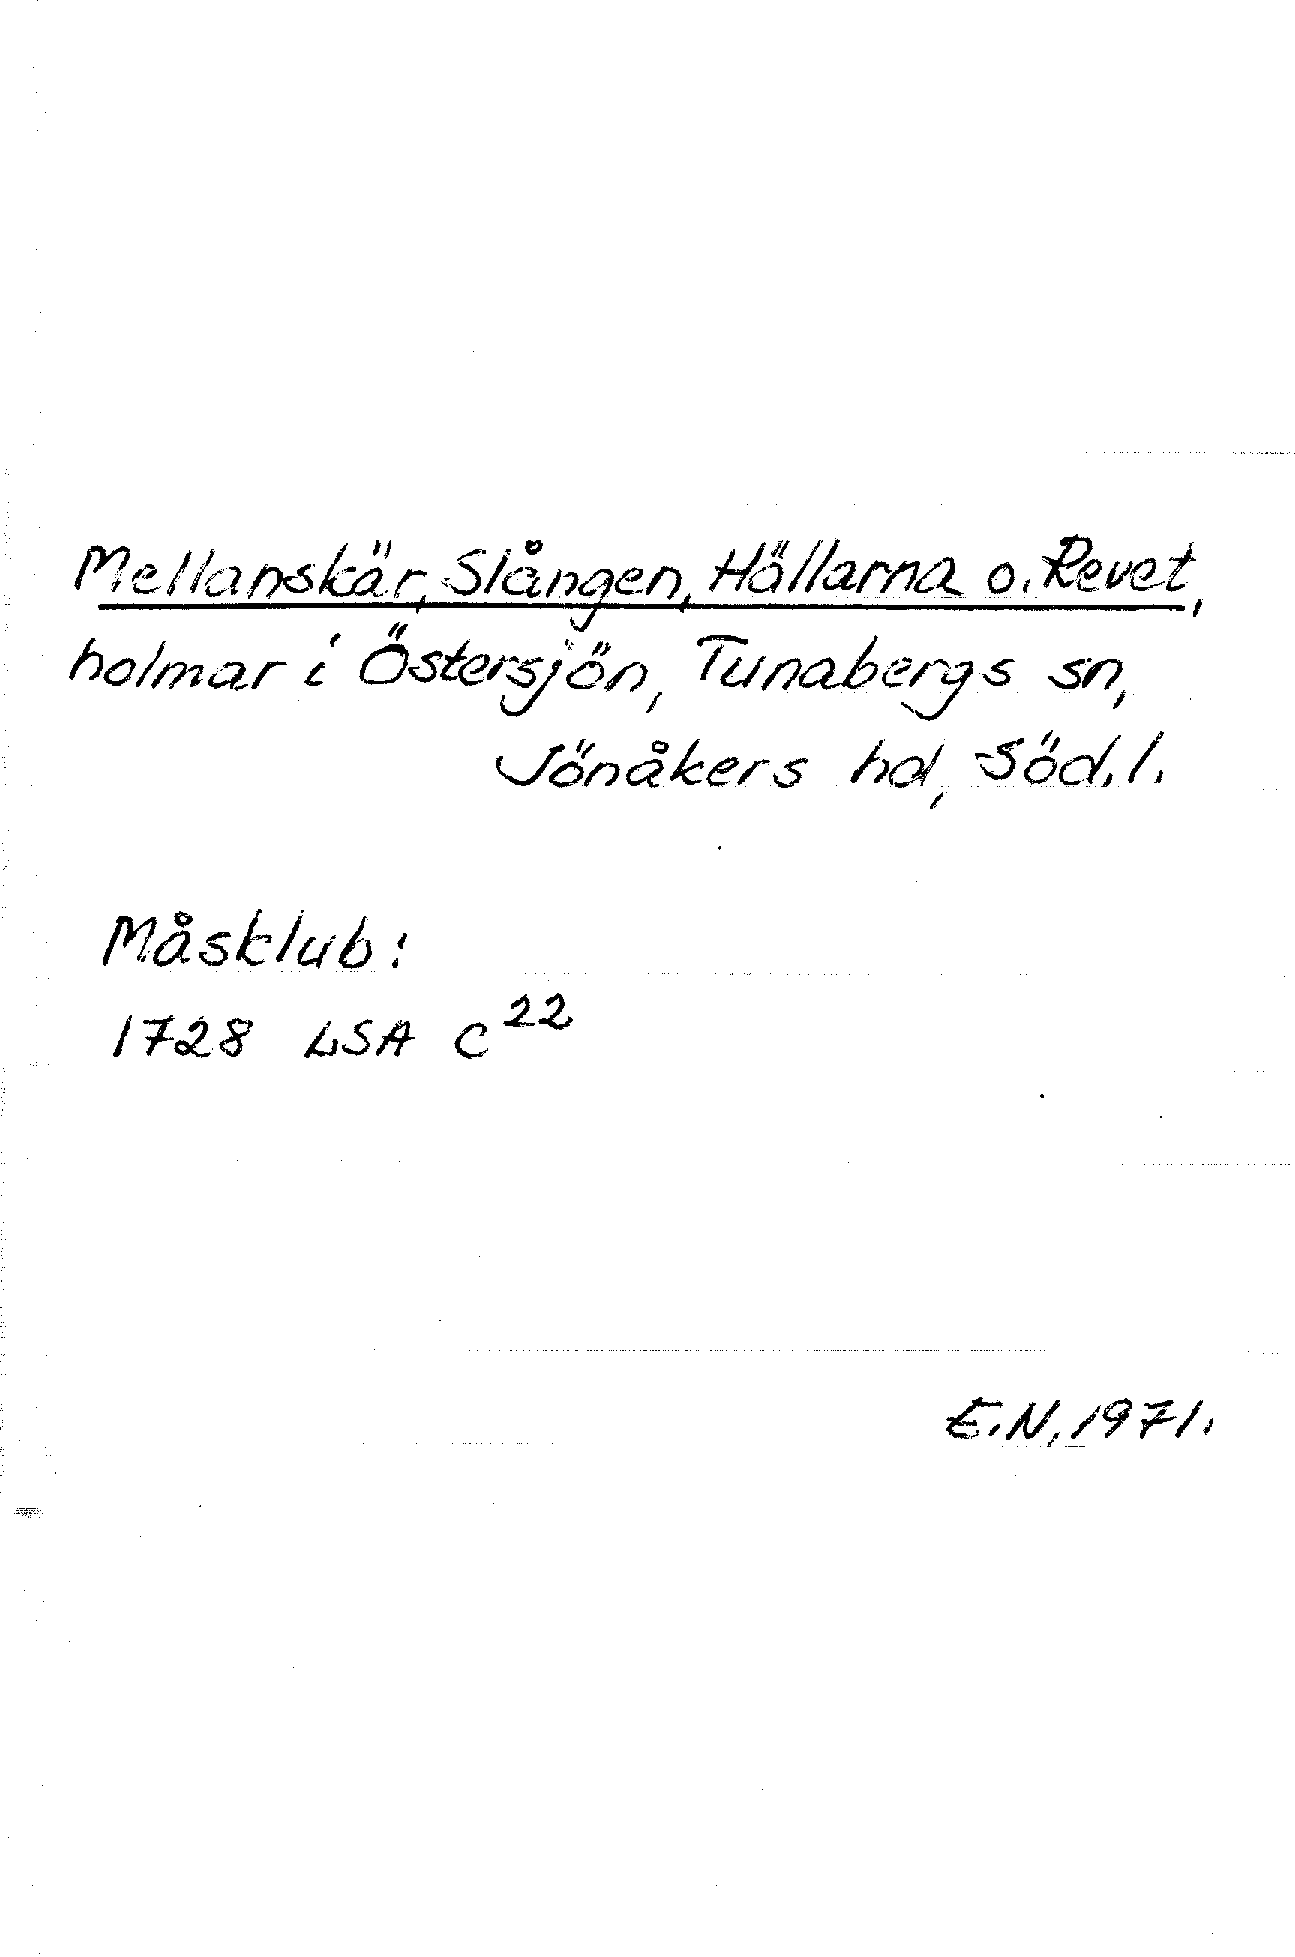 Mellanskär, Slången, Hällarna o. Revet,
holmar i Östersjön, Tunabergs sn,
Jönåkers hd, Söd.l.
Måsklub:
1728 LSA C²²
E.N. 1971.